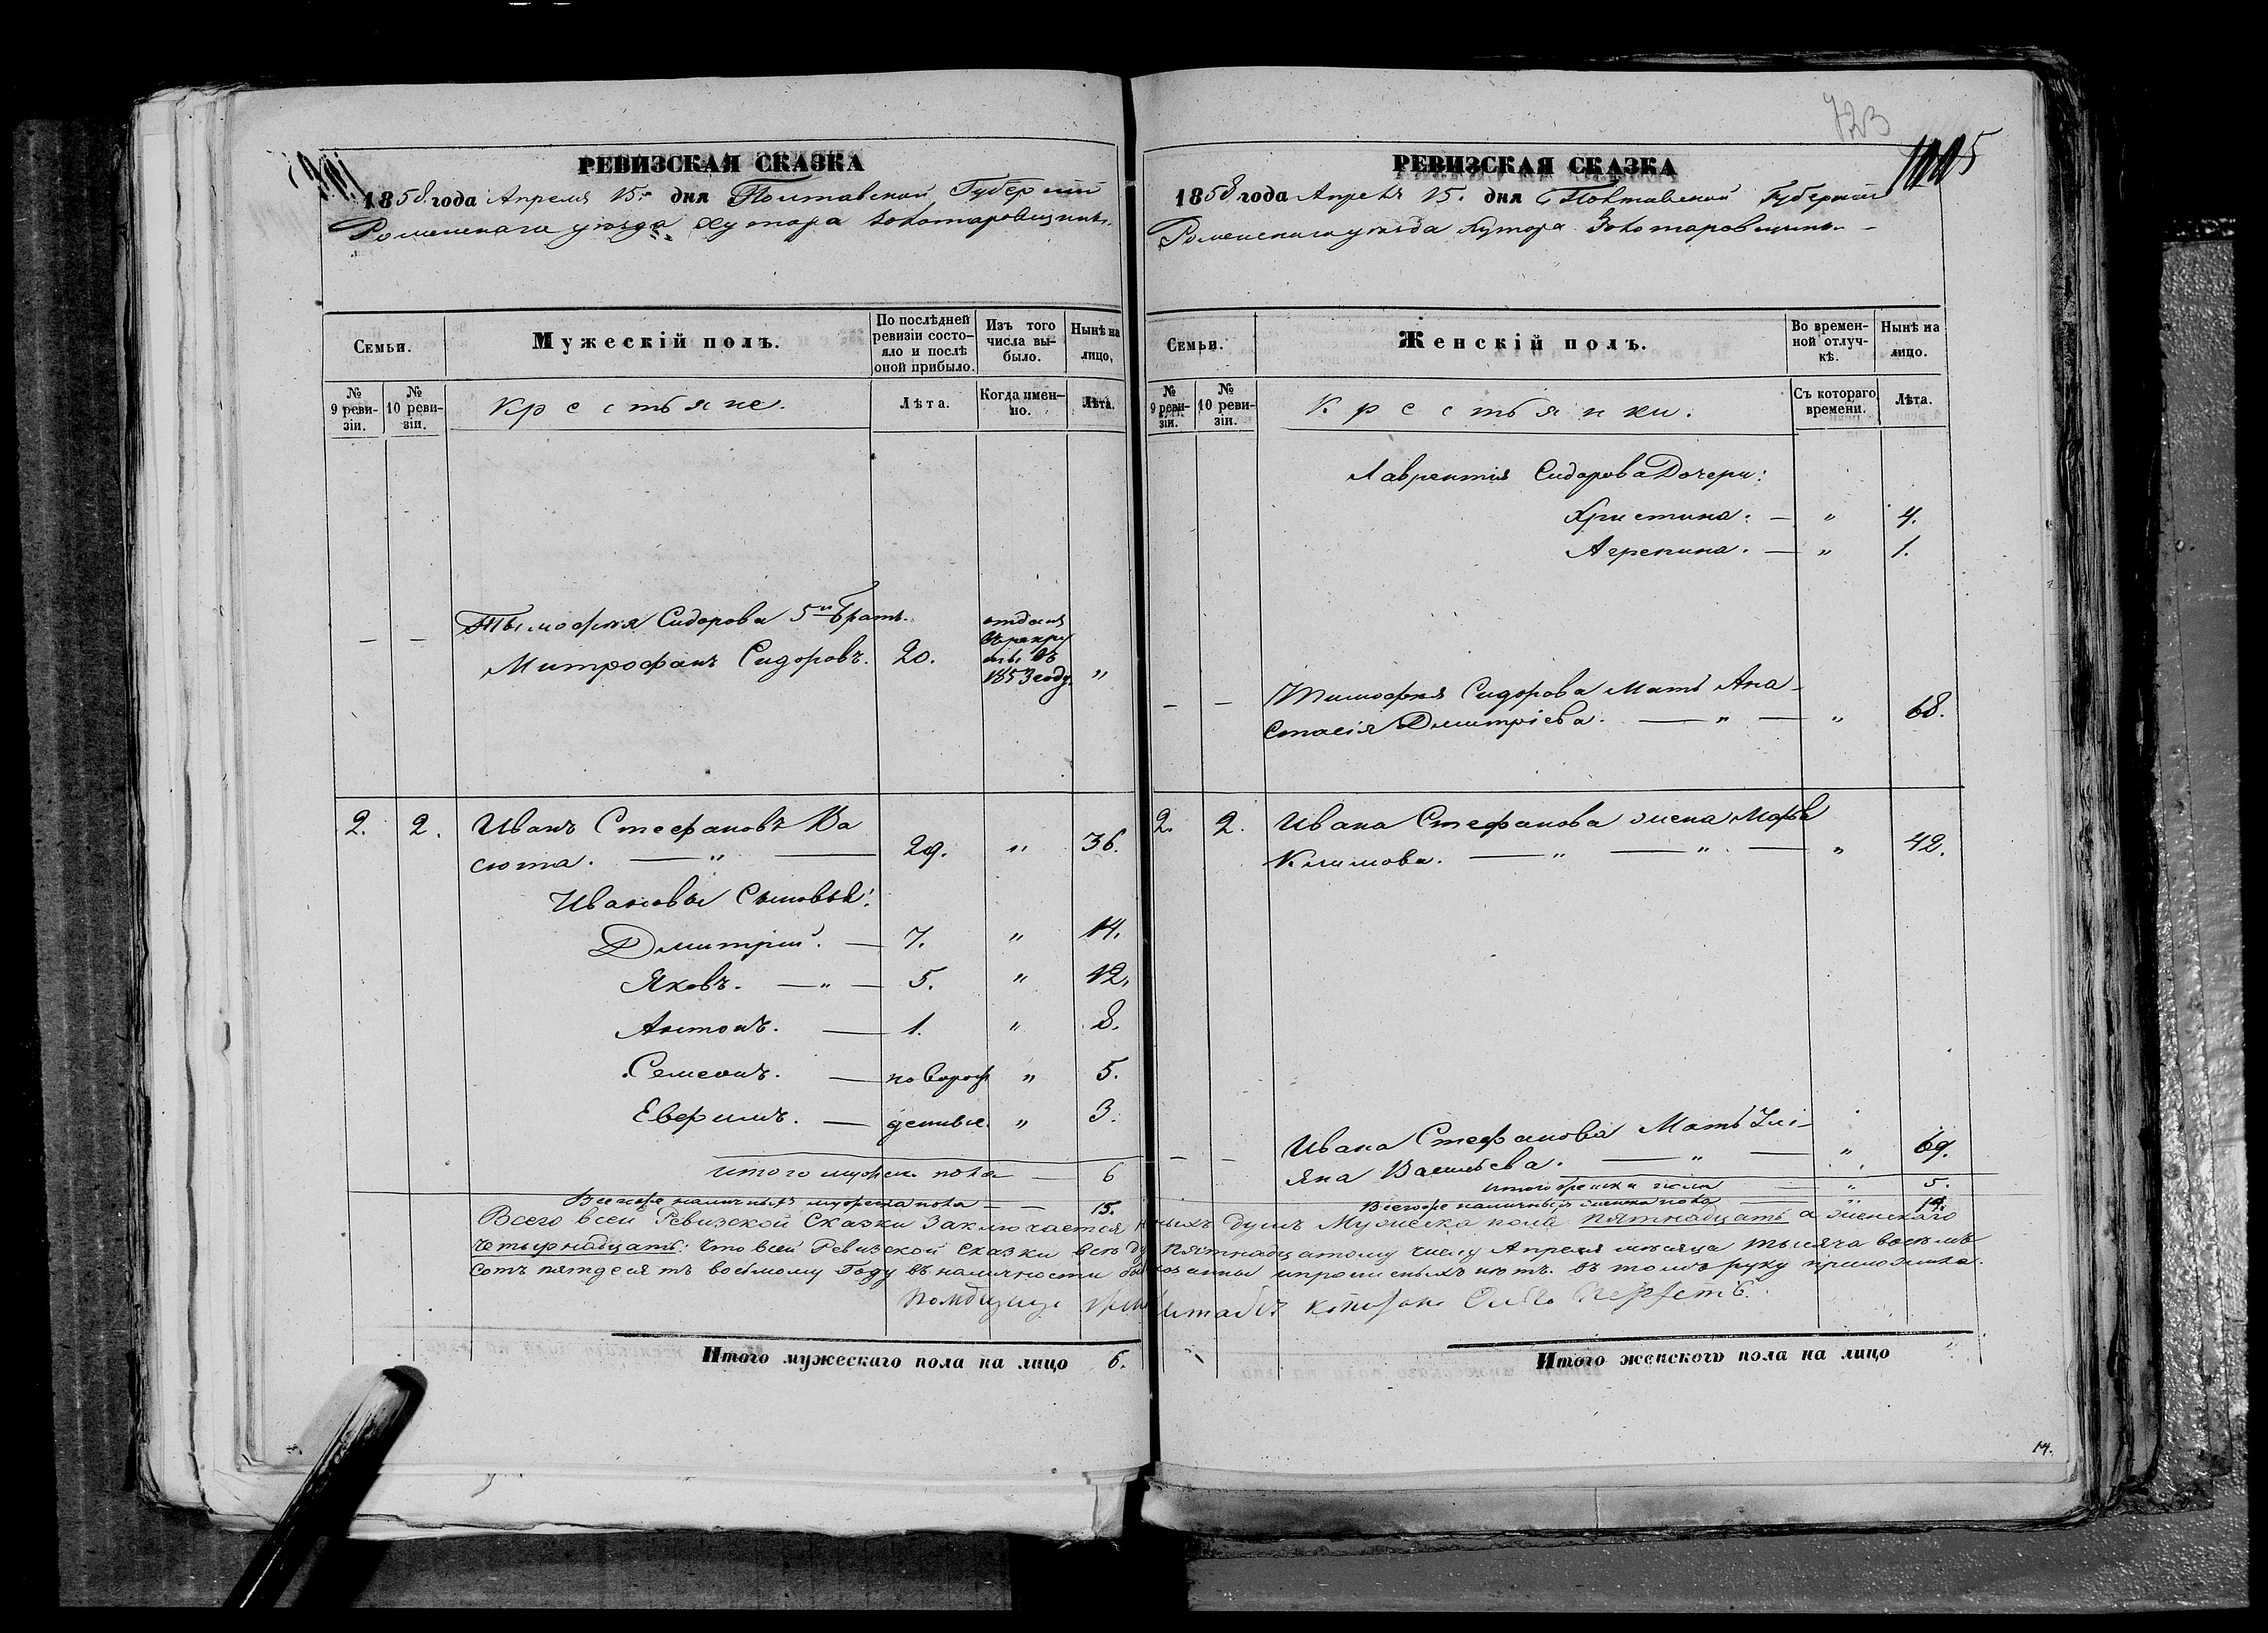 РЕВИЗСКАЯ СКАЗКА
1858 года Апреля 15. дня Полтавской Губернiи
Роменскаго уѣзда Хутора Золотаровщины.
Семьи.
Мужескiй полъ.
По послѣдней ревизiи состояло и послѣ оной прибыло.
Изъ того числа выбыло.
Нынѣ на лицо.
№ 9 ревизiи.
№ 10 ревизiи.
Крестьяне.
Лѣта.
Когда именно.
Лѣта.
Тымофѣя Сидорова 5й Братъ
Митрофанъ Сидоровъ. 20. отданъ въ рекруты въ 1853 году. "
2. 2. Иванъ Стефановъ Ва
сюта. — " — 29. " 36.
Ивановы Сыновья:
Дмитрiй. — 7. " 14.
Яковъ. — " — 5. " 12.
Антонъ. — 1. " 8.
Семенъ. — новорож " 5.
Евфимъ. — денные. " 3.
Итого мужеск. пола — 6
Всегоже наличныхъ мужеска пола — — 15.
РЕВИЗСКАЯ СКАЗКА
723
1005
1858 года Апрель 15. дня Полтавской Губернiи
Роменскаго уѣзда Хутора Золотаровщины —
Семьи.
Женскiй полъ.
Во временной отлучкѣ.
Нынѣ на лицо.
№ 9 ревизiи.
№ 10 ревизiи.
Крестьянки.
Съ котораго времени.
Лѣта.
Лаврентiя Сидорова Дочери:
Христина. — " 4.
Агрепина. — " 1.
Тимофѣя Сидорова Мать Ана-
стасiя Дмитрiева. — " — " 68.
2. 2. Ивана Стефанова жена Марфа
Климова. — " — " — " 42.
Ивана Стефанова Мать Улi-
яна Васильева. — " — " 69.
Итого женска пола — " 5.
Всегоже наличныхъ женска пола — " 14.
Всего всей Ревизской Сказки Заключается ныхъ душъ Мужеска пола пятнадцать а женскаго
четырнадцать: что всей Ревизской Сказки всѣ пятнадцатому числу Апреля мѣсяца тысяча восемь
сотъ пятдесятъ восьмому Году въ наличности и прописныхъ нѣтъ. въ томъ руку приложила.
Итого мужескаго пола на лицо 6.
Итого женского пола на лицо
14.